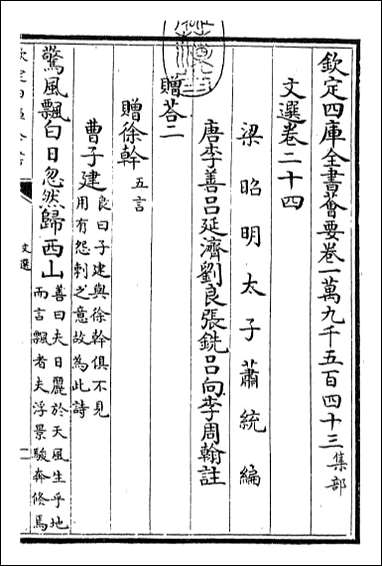 欽定四庫全書薈要卷一萬九千五百四十三集部
文選卷二十四
梁昭明太子蕭統編
唐李善呂延濟劉良張銑呂向李周翰註
贈荅二
贈徐幹五言
曹子建良曰子建與徐幹俱不見
用有怨刺之意故為此詩
驚風飄白日忽然歸西山善曰夫日麗於天風生乎地
而言飄者夫浮景駿奔倏焉
文選